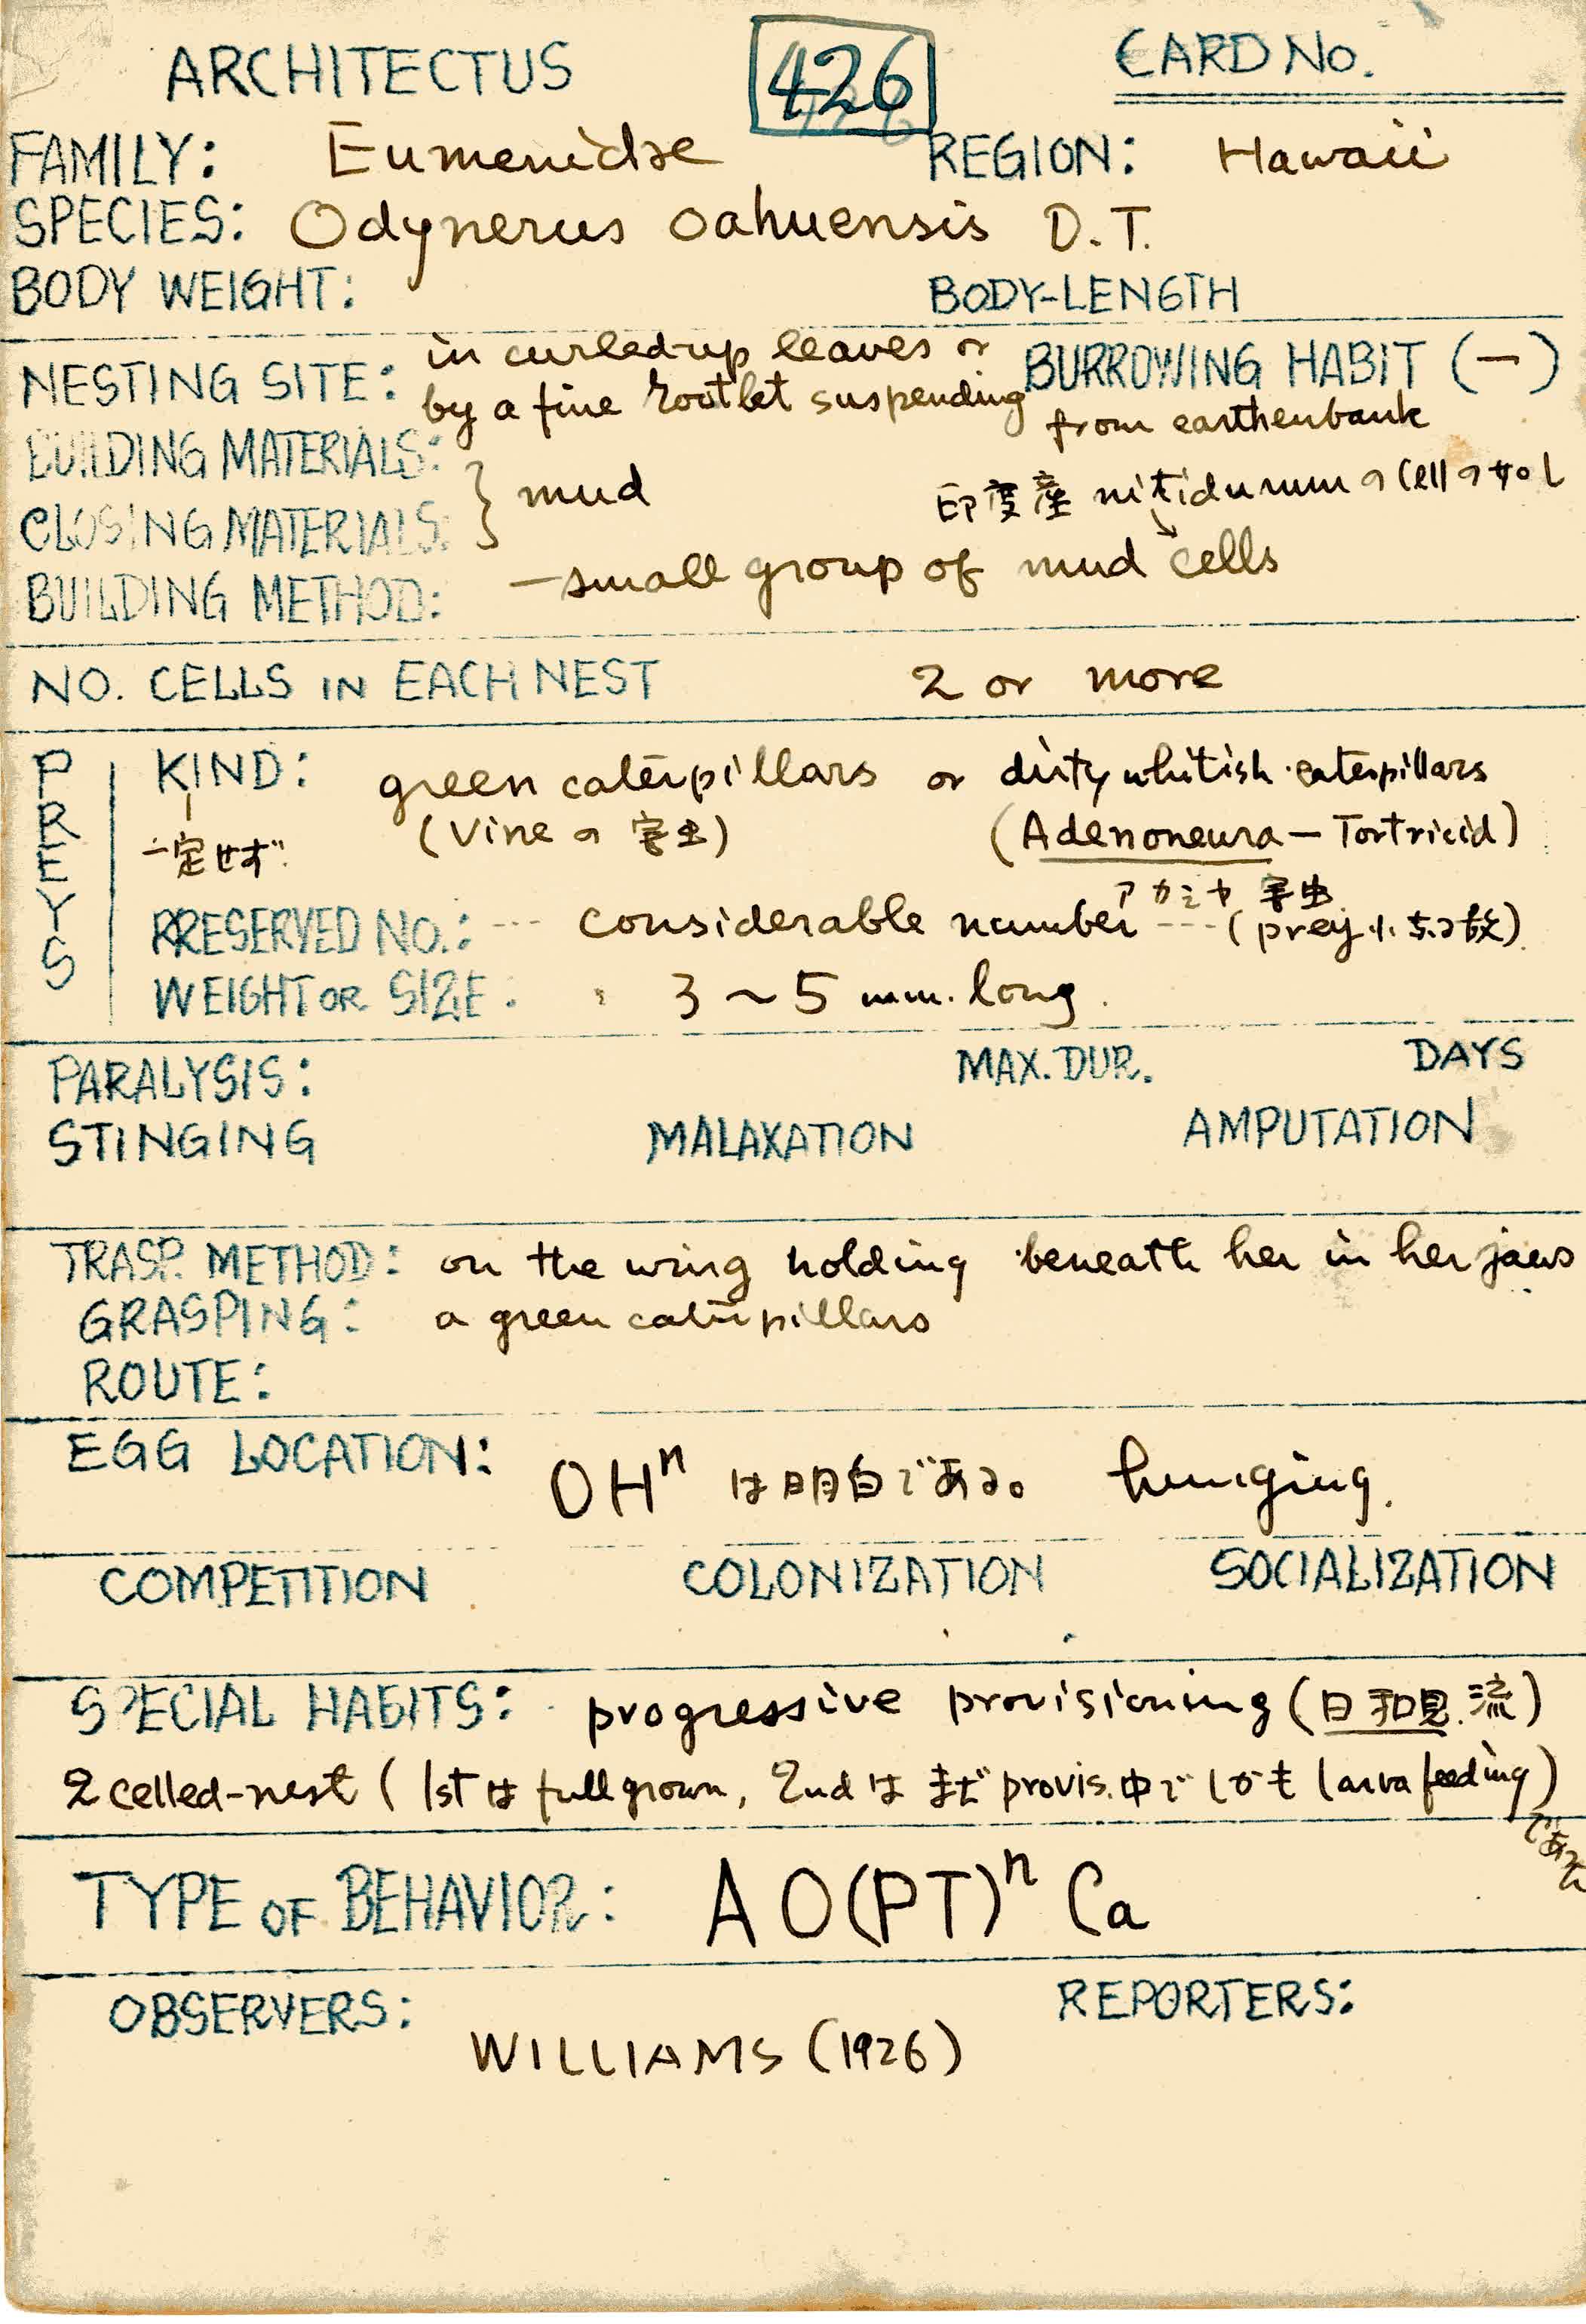 ARCHITECTUS 426 CARD No.
FAMILY: Eumenidae REGION: Hawaii
SPECIES: Odynerus oahuensis D.T.
BODY WEIGHT: BODY-LENGTH
NESTING SITE: in curled-up leaves or BURROWING HABIT (−)
by a fine rootlet suspending from earthenbank
BUILDING MATERIALS:
CLOSING MATERIALS: } mud 印度産 nitidumumのCellの如し
BUILDING METHOD: — small group of mud cells
NO. CELLS IN EACH NEST 2 or more
PREYS
KIND: green caterpillars or dirty whitish caterpillars
一定せず (Vineの害虫) (Adenoneura – Tortricid)
アカミヤ害虫
PRESERVED NO.: --- considerable number --- (prey小なる故)
WEIGHT OR SIZE: 3 ~ 5 mm. long.
PARALYSIS: MAX. DUR. DAYS
STINGING MALAXATION AMPUTATION
TRASP. METHOD: on the wing holding beneath her in her jaws
GRASPING: a green caterpillars
ROUTE:
EGG LOCATION: OHⁿ は明白である。 hunging.
COMPETITION COLONIZATION SOCIALIZATION
SPECIAL HABITS: progressive provisioning (日和見流)
2 celled-nest (1stは full grown, 2ndは まだ provis.中でしかも larva feeding)
であった
TYPE OF BEHAVIOR: A O(PT)ⁿ Ca
OBSERVERS: WILLIAMS (1926) REPORTERS: